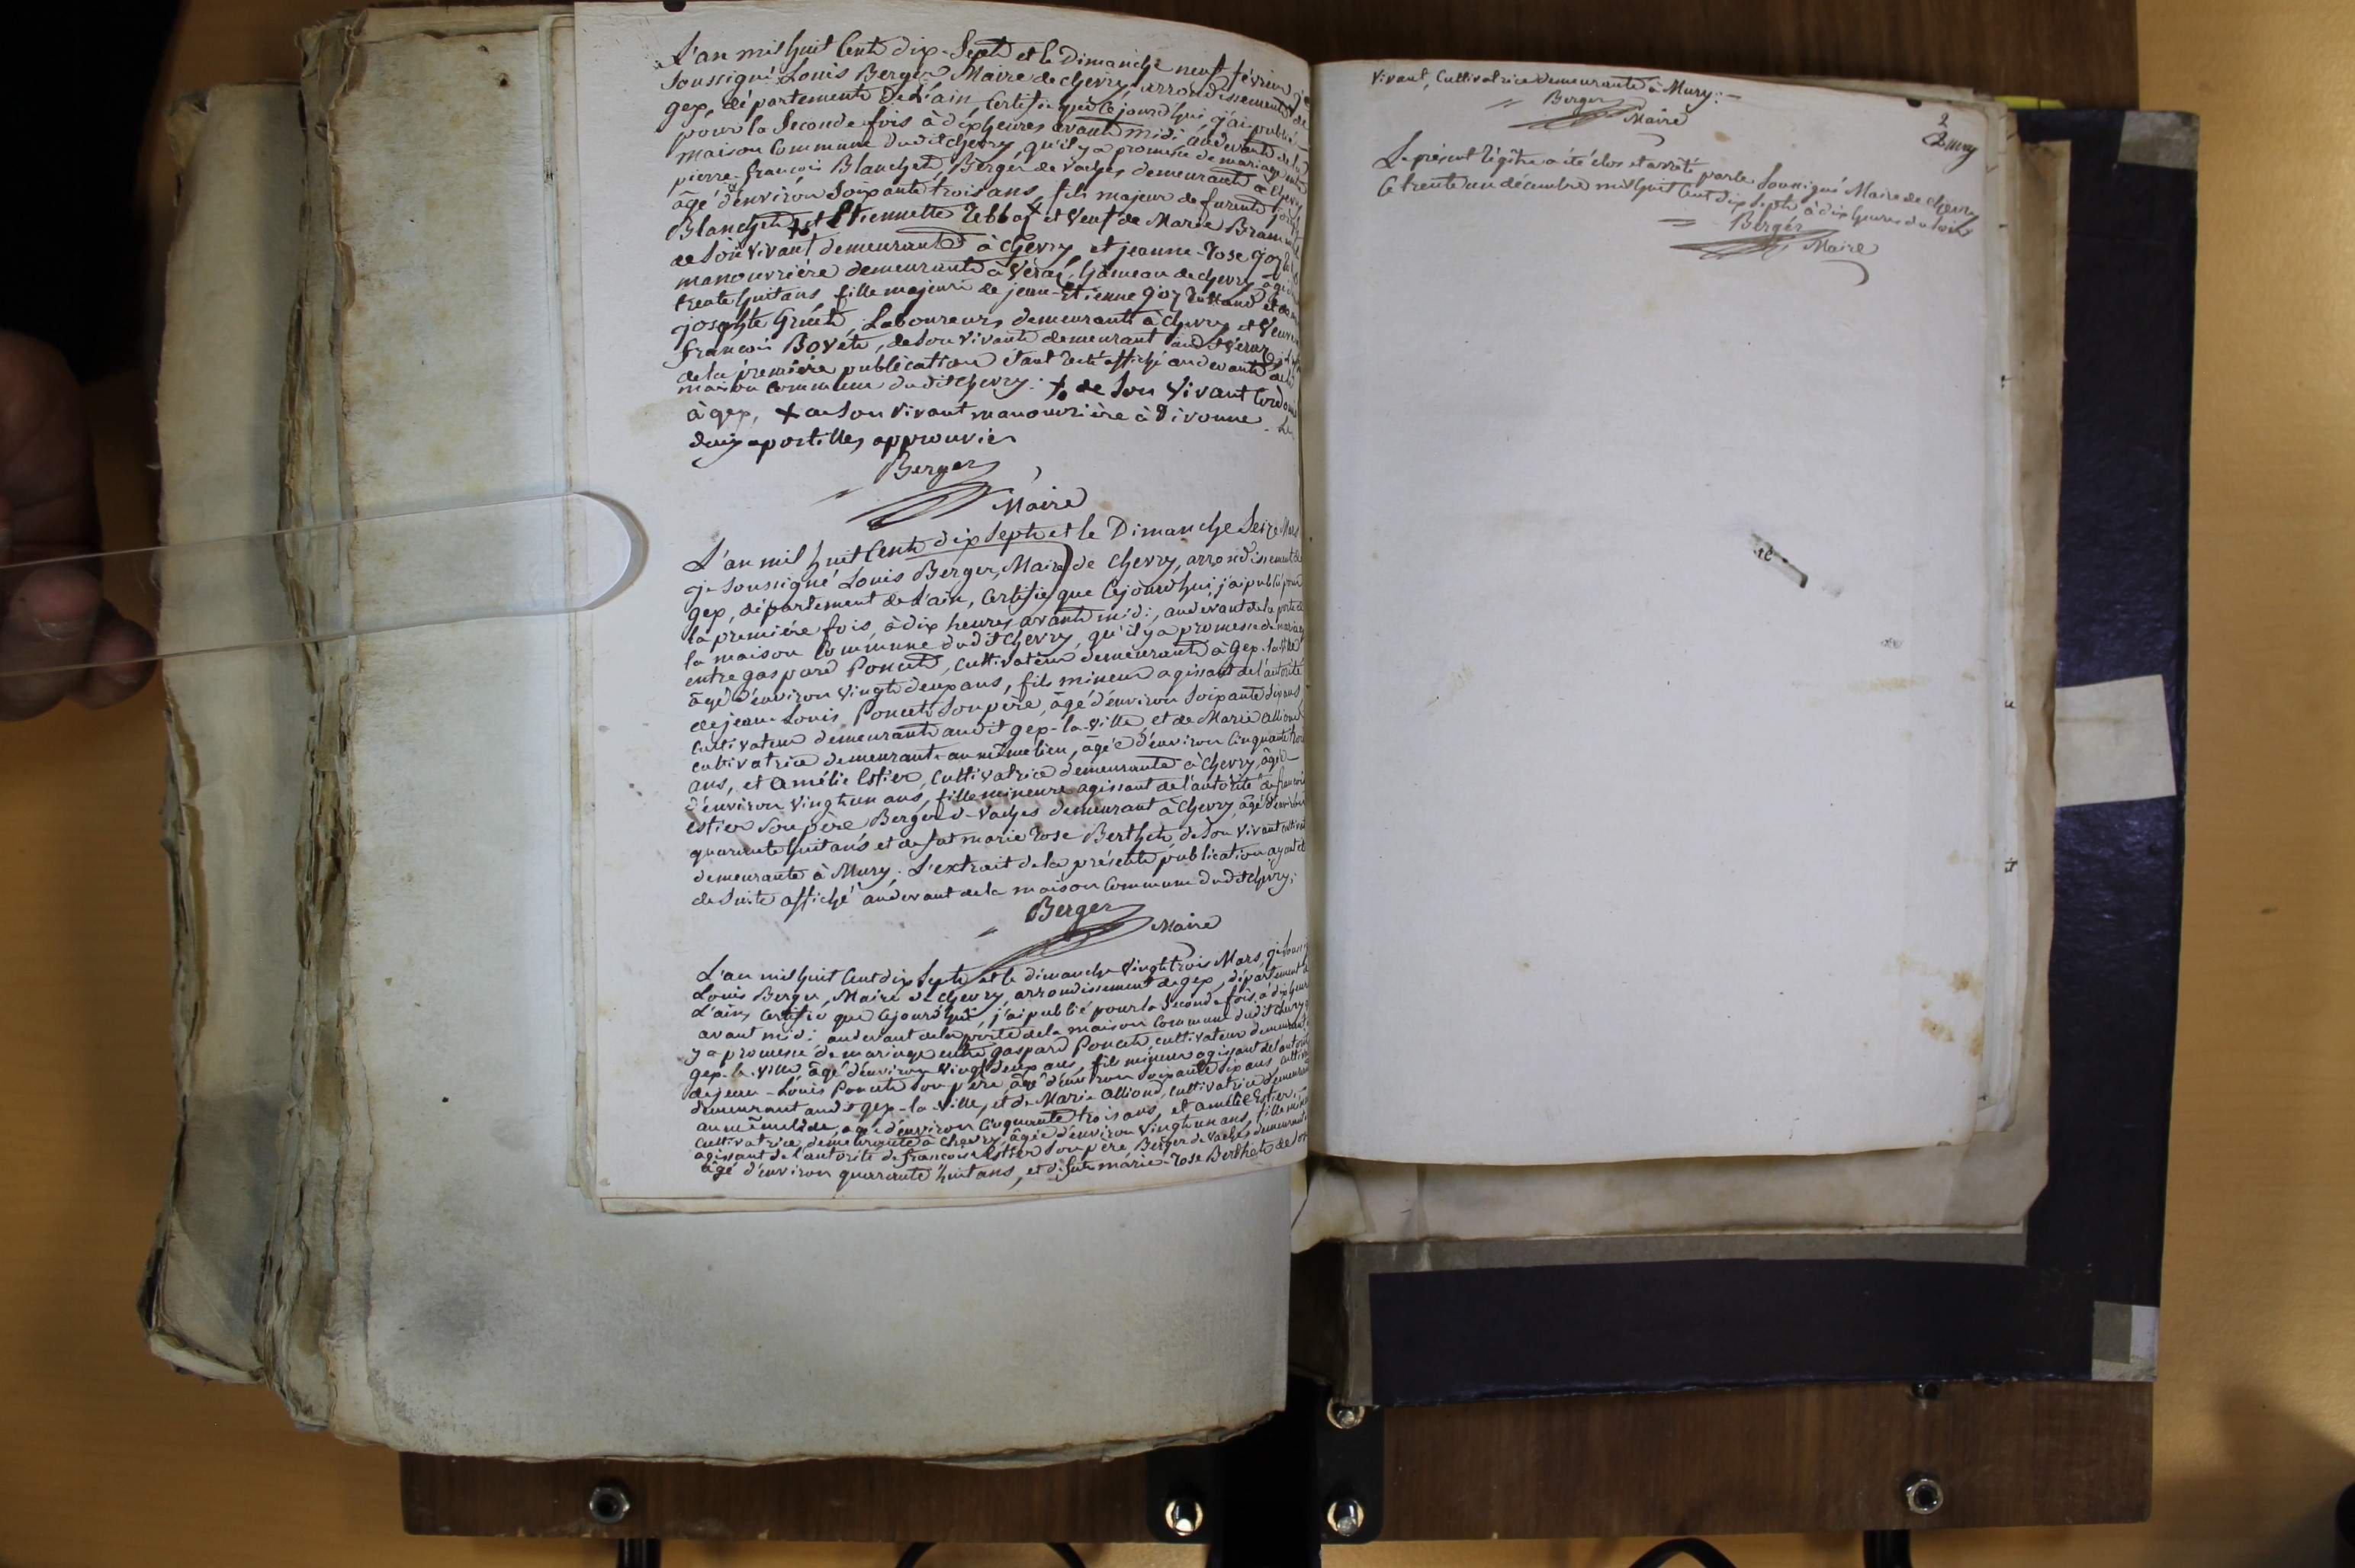 L'an mil huit Cent dix-Sept et le Dimanche neuf février je
Soussigné Louis Berger Maire de chevry, arrondissement de
gex, département De L'ain, Certifie que Cejourd'hui, j'ai publié
pour la Seconde fois à dix heures avant midi, au devant de la
maison Commune dudit chevry, qu'il y a promesse de mariage entre
pierre-françois Blanchet, Berger de Vaches demeurant à Chevry
âgé d'environ Soixante trois ans, fils majeur de furent
Blanchet et Etiennette et Veuf de Marie
de Son Vivant demeurante à Chevry et jeanne-Rose goy
manouvrière demeurante à Véraz, hameau de chevry âgée
trente huit ans fille majeure de jean-Etienne goy et de
josephte Laboureurs demeurants à Chevry et Veuve
françois Bovet, de Son Vivant demeurant audit Véraz
de la première publication étant resté affiché au devant de la
maison Commune dudit Chevry. de Son Vivant
à gex, de Son Vivant manouvrière à Divonne.
deux apostilles approuvées
Berger
Maire
L'an mil huit Cent dix Sept et le Dimanche Seize Mars
je Soussigné Louis Berger, Maire de Chevry, arrondissement de
gex, département de l'ain, Certifie que Cejourd'hui j'ai publié pour
la première fois, à dix heures avant midi, au devant de la porte de
la maison Commune dudit Chevry, qu'il y a promesse de mariage
entre gaspard Poncet, Cultivateur demeurant à Gex-la-Ville
âgé d'environ Vingt deux ans, fils mineur agissant de l'autorité
de jean Louis Poncet Son père, âgé d'environ Soixante dix ans
Cultivateur demeurant audit gex-la-Ville, et de Marie alliond
cultivatrice demeurante au même lieu, âgée d'environ Cinquante trois
ans, et amélie Estier, Cultivatrice demeurante à Chevry, âgée
d'environ Vingt un ans, fille mineure agissant de l'autorité de françois
estier Son père Berger de Vaches demeurant à Chevry, âgé d'environ
quarante huit ans et de fut marie rose Berthet, de Son Vivant
demeurante à Mury; L'extrait de la présente publication ayant été
de Suite affiché au devant de la maison Commune dudit chevry;
Berger
Maire
L'an mil huit Cent dix Sept et le dimanche Vingt trois Mars, je
Louis Berger, Maire de chevry, arrondissement de gex, département de
L'ain, Certifie que Cejourd'hui, j'ai publié pour la Seconde fois, à dix heures
avant midi, au devant de la porte de la maison Commune dudit Chevry
y a promesse de mariage entre gaspard Poncet, cultivateur demeurant
gex-la-Ville, âgé d'environ Vingt deux ans, fils mineur agissant de l'autorité
de jean-Louis Poncet Son père, âgé d'environ Soixante dix ans
demeurant audit gex-la-Ville, et de Marie Alliond, Cultivatrice demeurante
au même lieu, âgée d'environ Cinquante trois ans, et amélie Estier,
cultivatrice, demeurante à Chevry, âgée d'environ Vingt un ans, fille mineure
agissant de l'autorité de françois Estier Son père, Berger de Vaches demeurant
âgé d'environ quarante huit ans, et de fut marie-Rose Berthet de Son
Vivant, Cultivatrice demeurante à Mury:
Berger
Maire
2
Le présent régître a été clos et arrêté par le Soussigné Maire de Chevry
Ce trente un décembre mil huit Cent dix Sept à dix heures du Soir
Berger
Maire